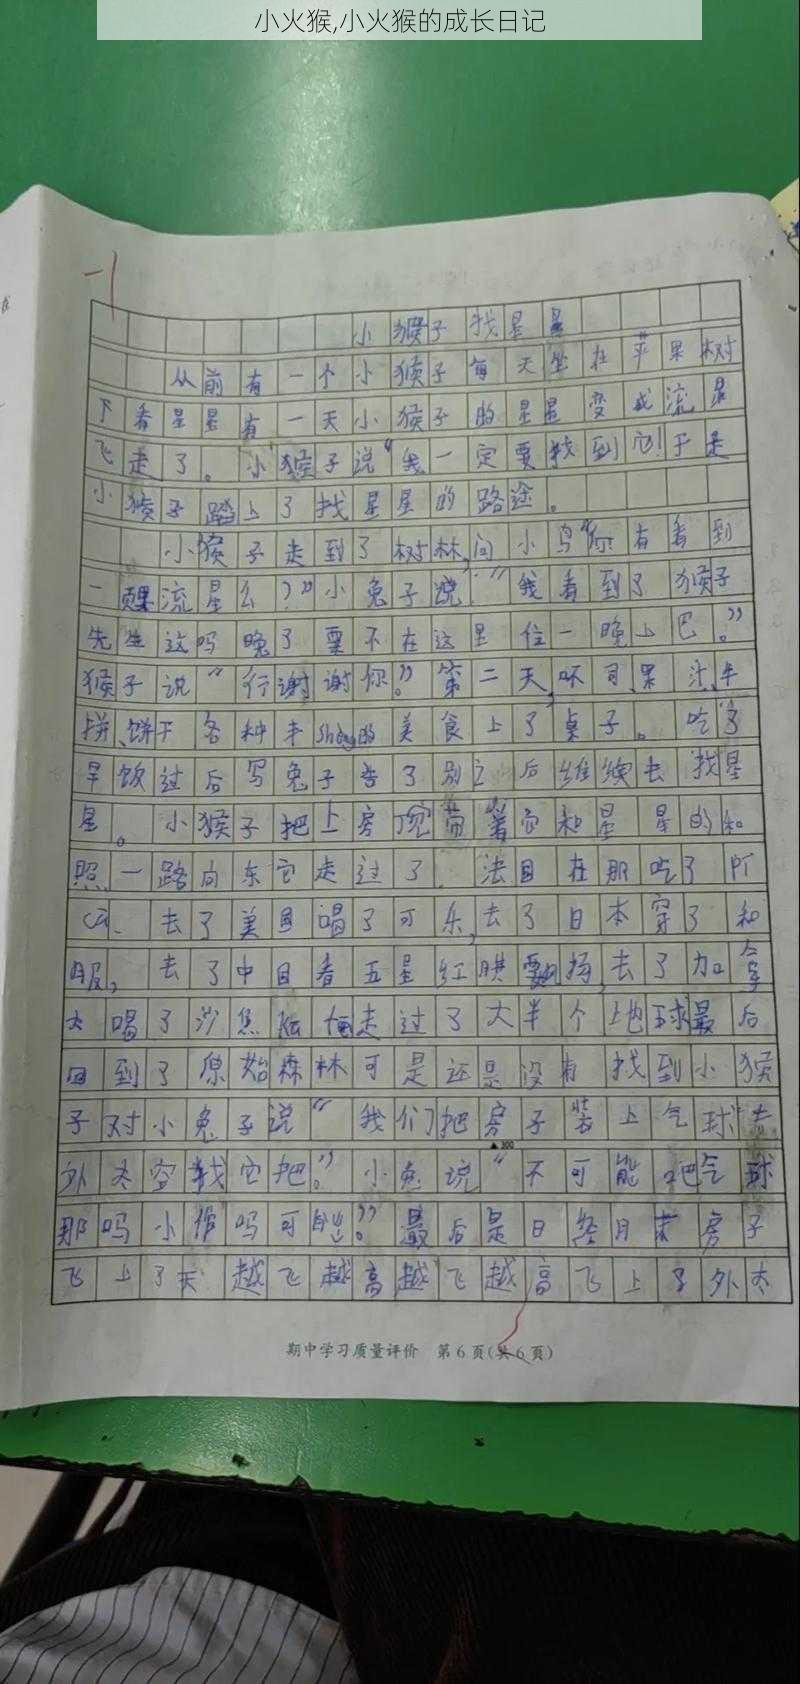 小火猴,小火猴的成长日记
-1
小猴子找星星
从前有一个小猴子每天坐在苹果树
下看星星有一天小猴子的星星变成流星
飞走了。小猴子说“我一定要找到它!于是
小猴子踏上了找星星的路途。
小猴子走到了树林,问小鸟“你有看到
一颗流星么?”小兔子说:“我看到了猴子
先生这吗晚了要不在这里住一晚上巴。”
猴子说“行谢谢你。”第二天,坏司果汁,牛
拼、饼干各种丰shèng的美食上了桌子。吃了
早饭过后写兔子告了别之后继续去找星
星。小猴子把上房顶带着它和星星的和
照一路向东它走过了法国在那吃了PT
去了美国喝了可乐,去了日本穿了和
服,去了中国看五星红旗飘扬,去了加拿
大喝了沙焦走过了大半个地球最后
回到了原始森林可是还是没有找到小猴
子对小兔子说“我们把房子装上气球去
外太空找它把。”小兔说“不可能吧气球
那吗小作吗可能”。最后是日冬月房子
飞上了天越飞越高越飞越高飞上了外太
▲300
期中学习质量评价 第6页(共6页)